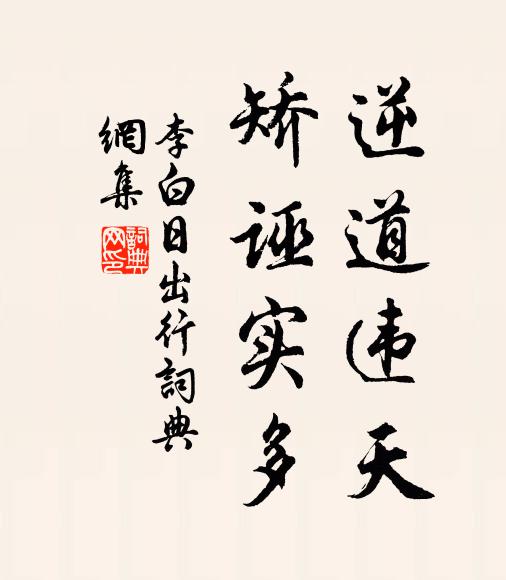 逆道违天
矫诬实多
李白日出行詞典
網集
詞典
网印